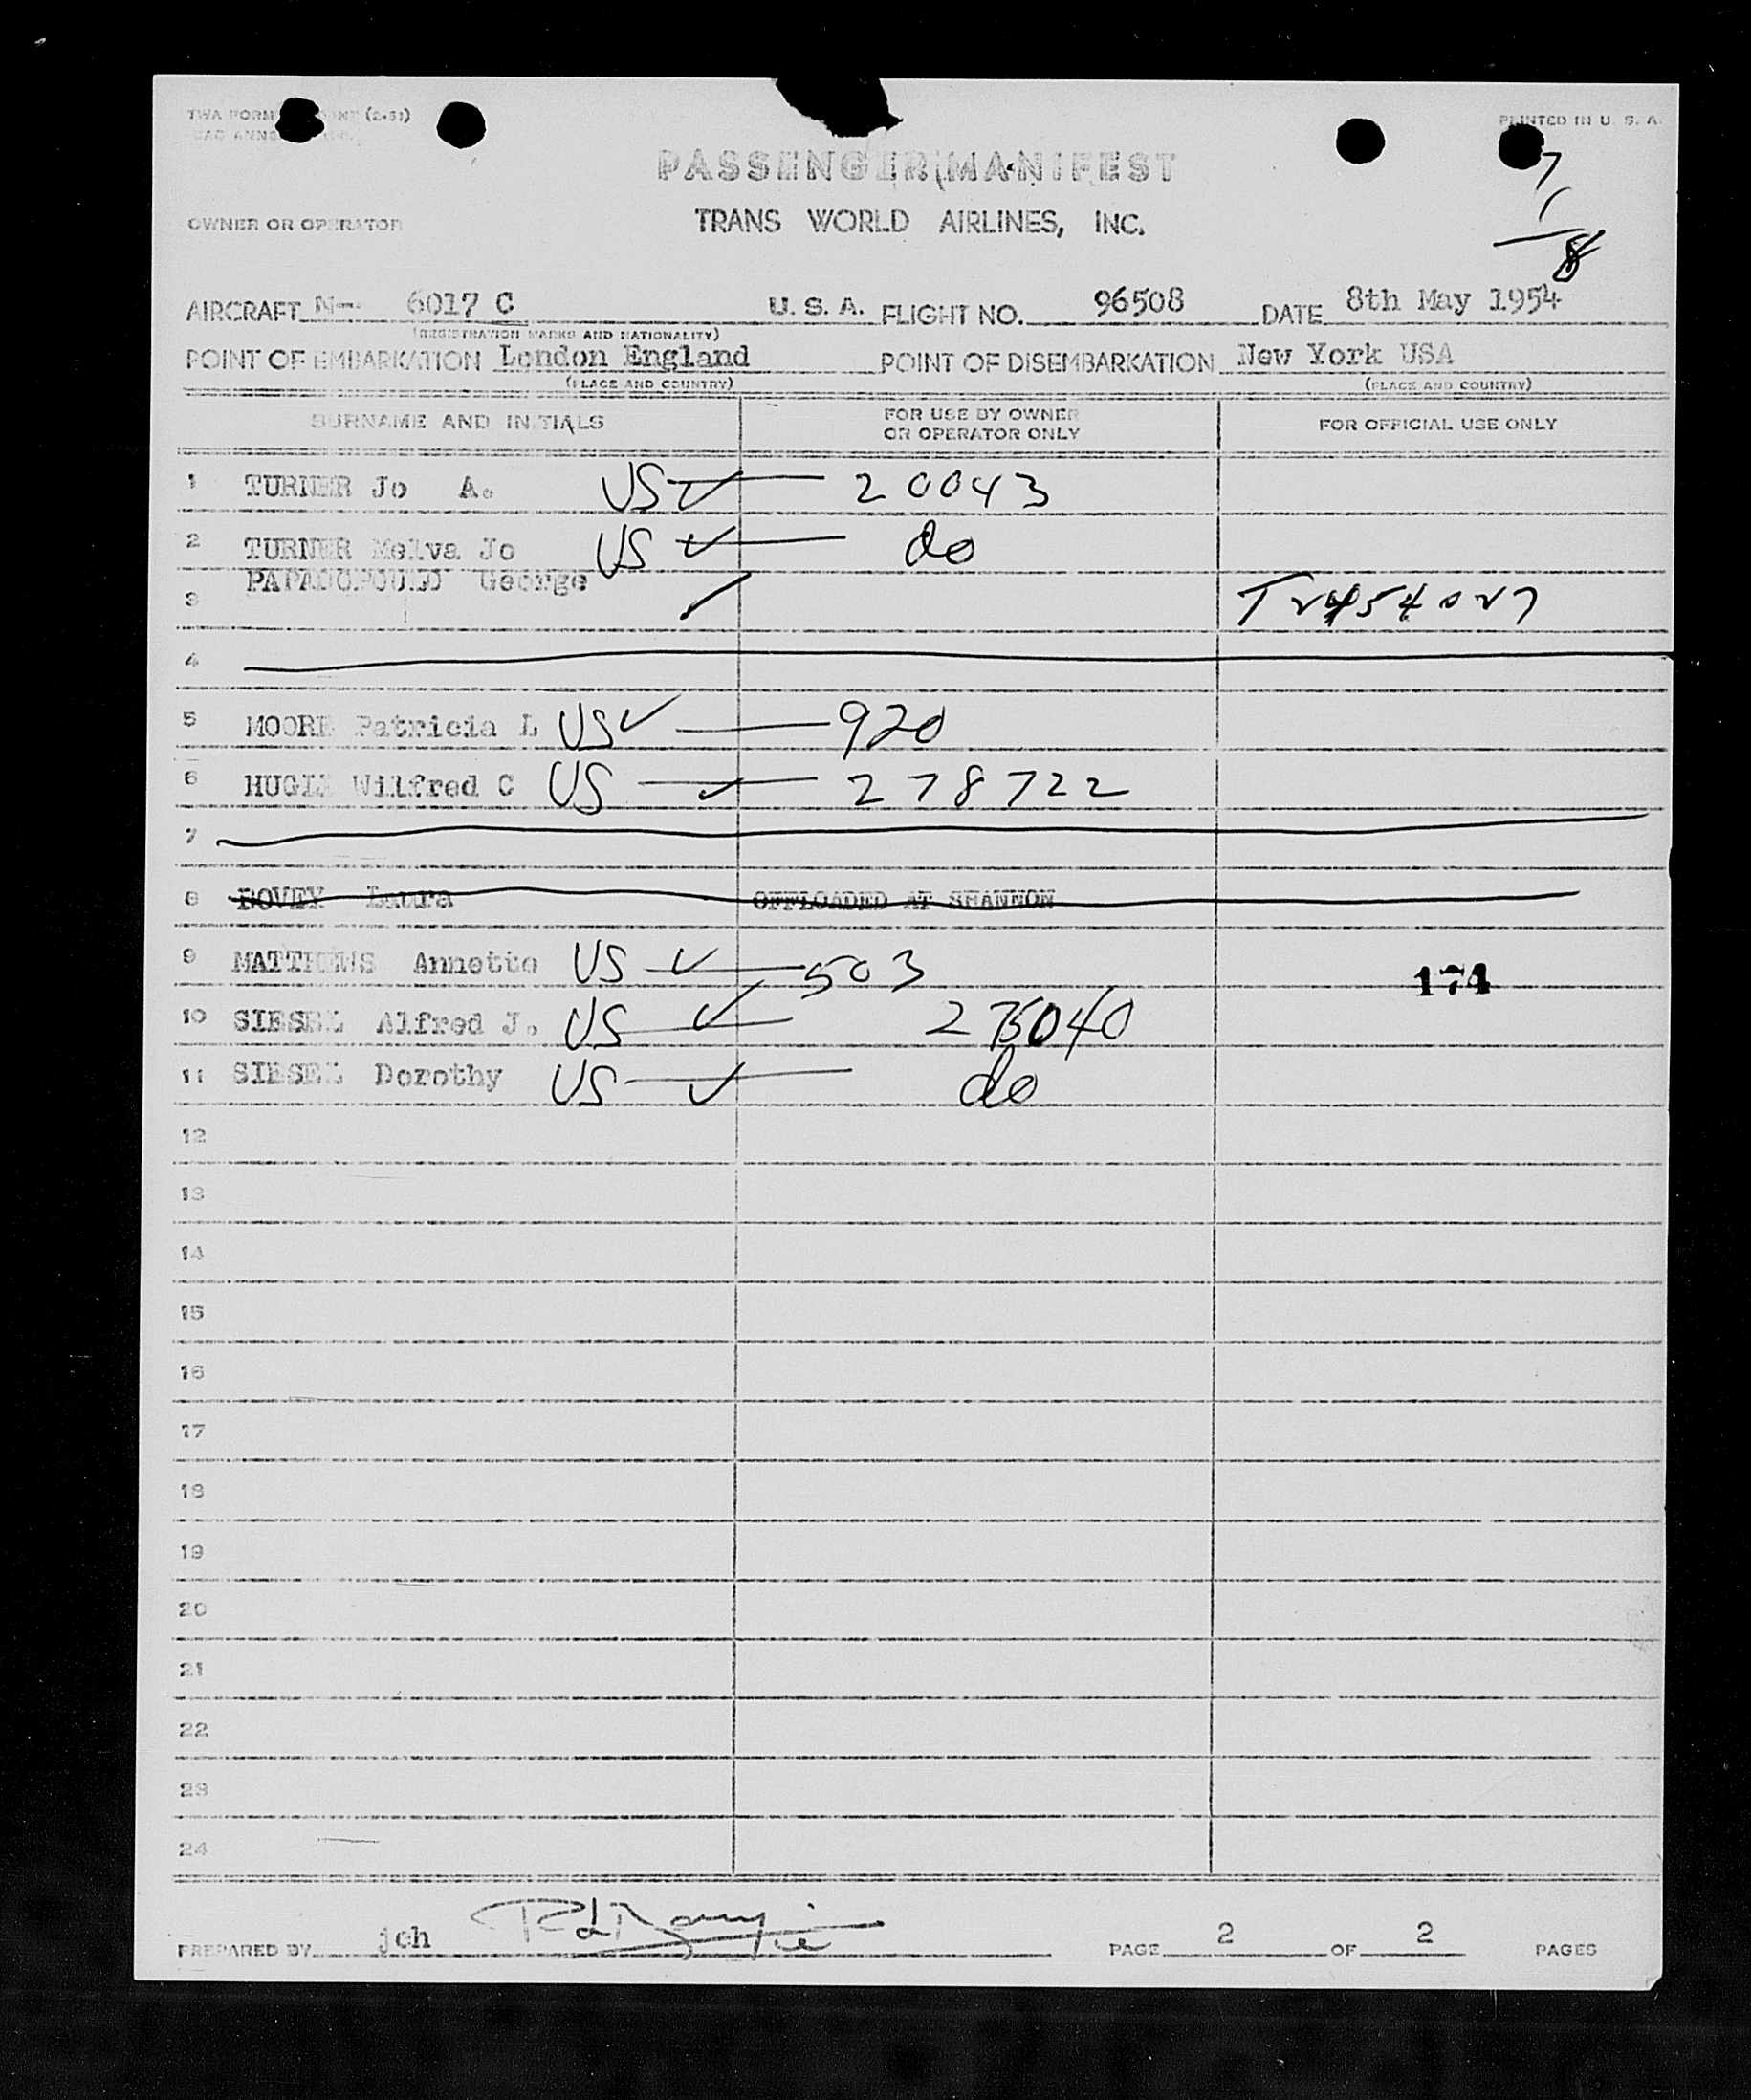 TWA FORM (2-51)
PRINTED IN U. S. A.
PASSENGER MANIFEST
7
1
8
OWNER OR OPERATOR TRANS WORLD AIRLINES, INC.
AIRCRAFT N- 6017 C U. S. A. FLIGHT NO. 96508 DATE 8th May 1954
(REGISTRATION MARKS AND NATIONALITY)
POINT OF EMBARKATION London England POINT OF DISEMBARKATION New York USA
(PLACE AND COUNTRY) (PLACE AND COUNTRY)
SURNAME AND INITIALS FOR USE BY OWNER OR OPERATOR ONLY FOR OFFICIAL USE ONLY
1 TURNER Jo A. US 20043
2 TURNER Melva Jo US do
3 PAPADOPOULO George
4
5 MOORE Patricia L US 920
6 HUGIE Wilfred C US 278722
7
8 BOVEY Laura OFFLOADED AT SHANNON
9 MATTHEWS Annette US 503 174
10 SIESEL Alfred J. US
11 SIESEL Dorothy US do
12
13
14
15
16
17
18
19
20
21
22
23
24
PREPARED BY jch PAGE 2 OF 2 PAGES